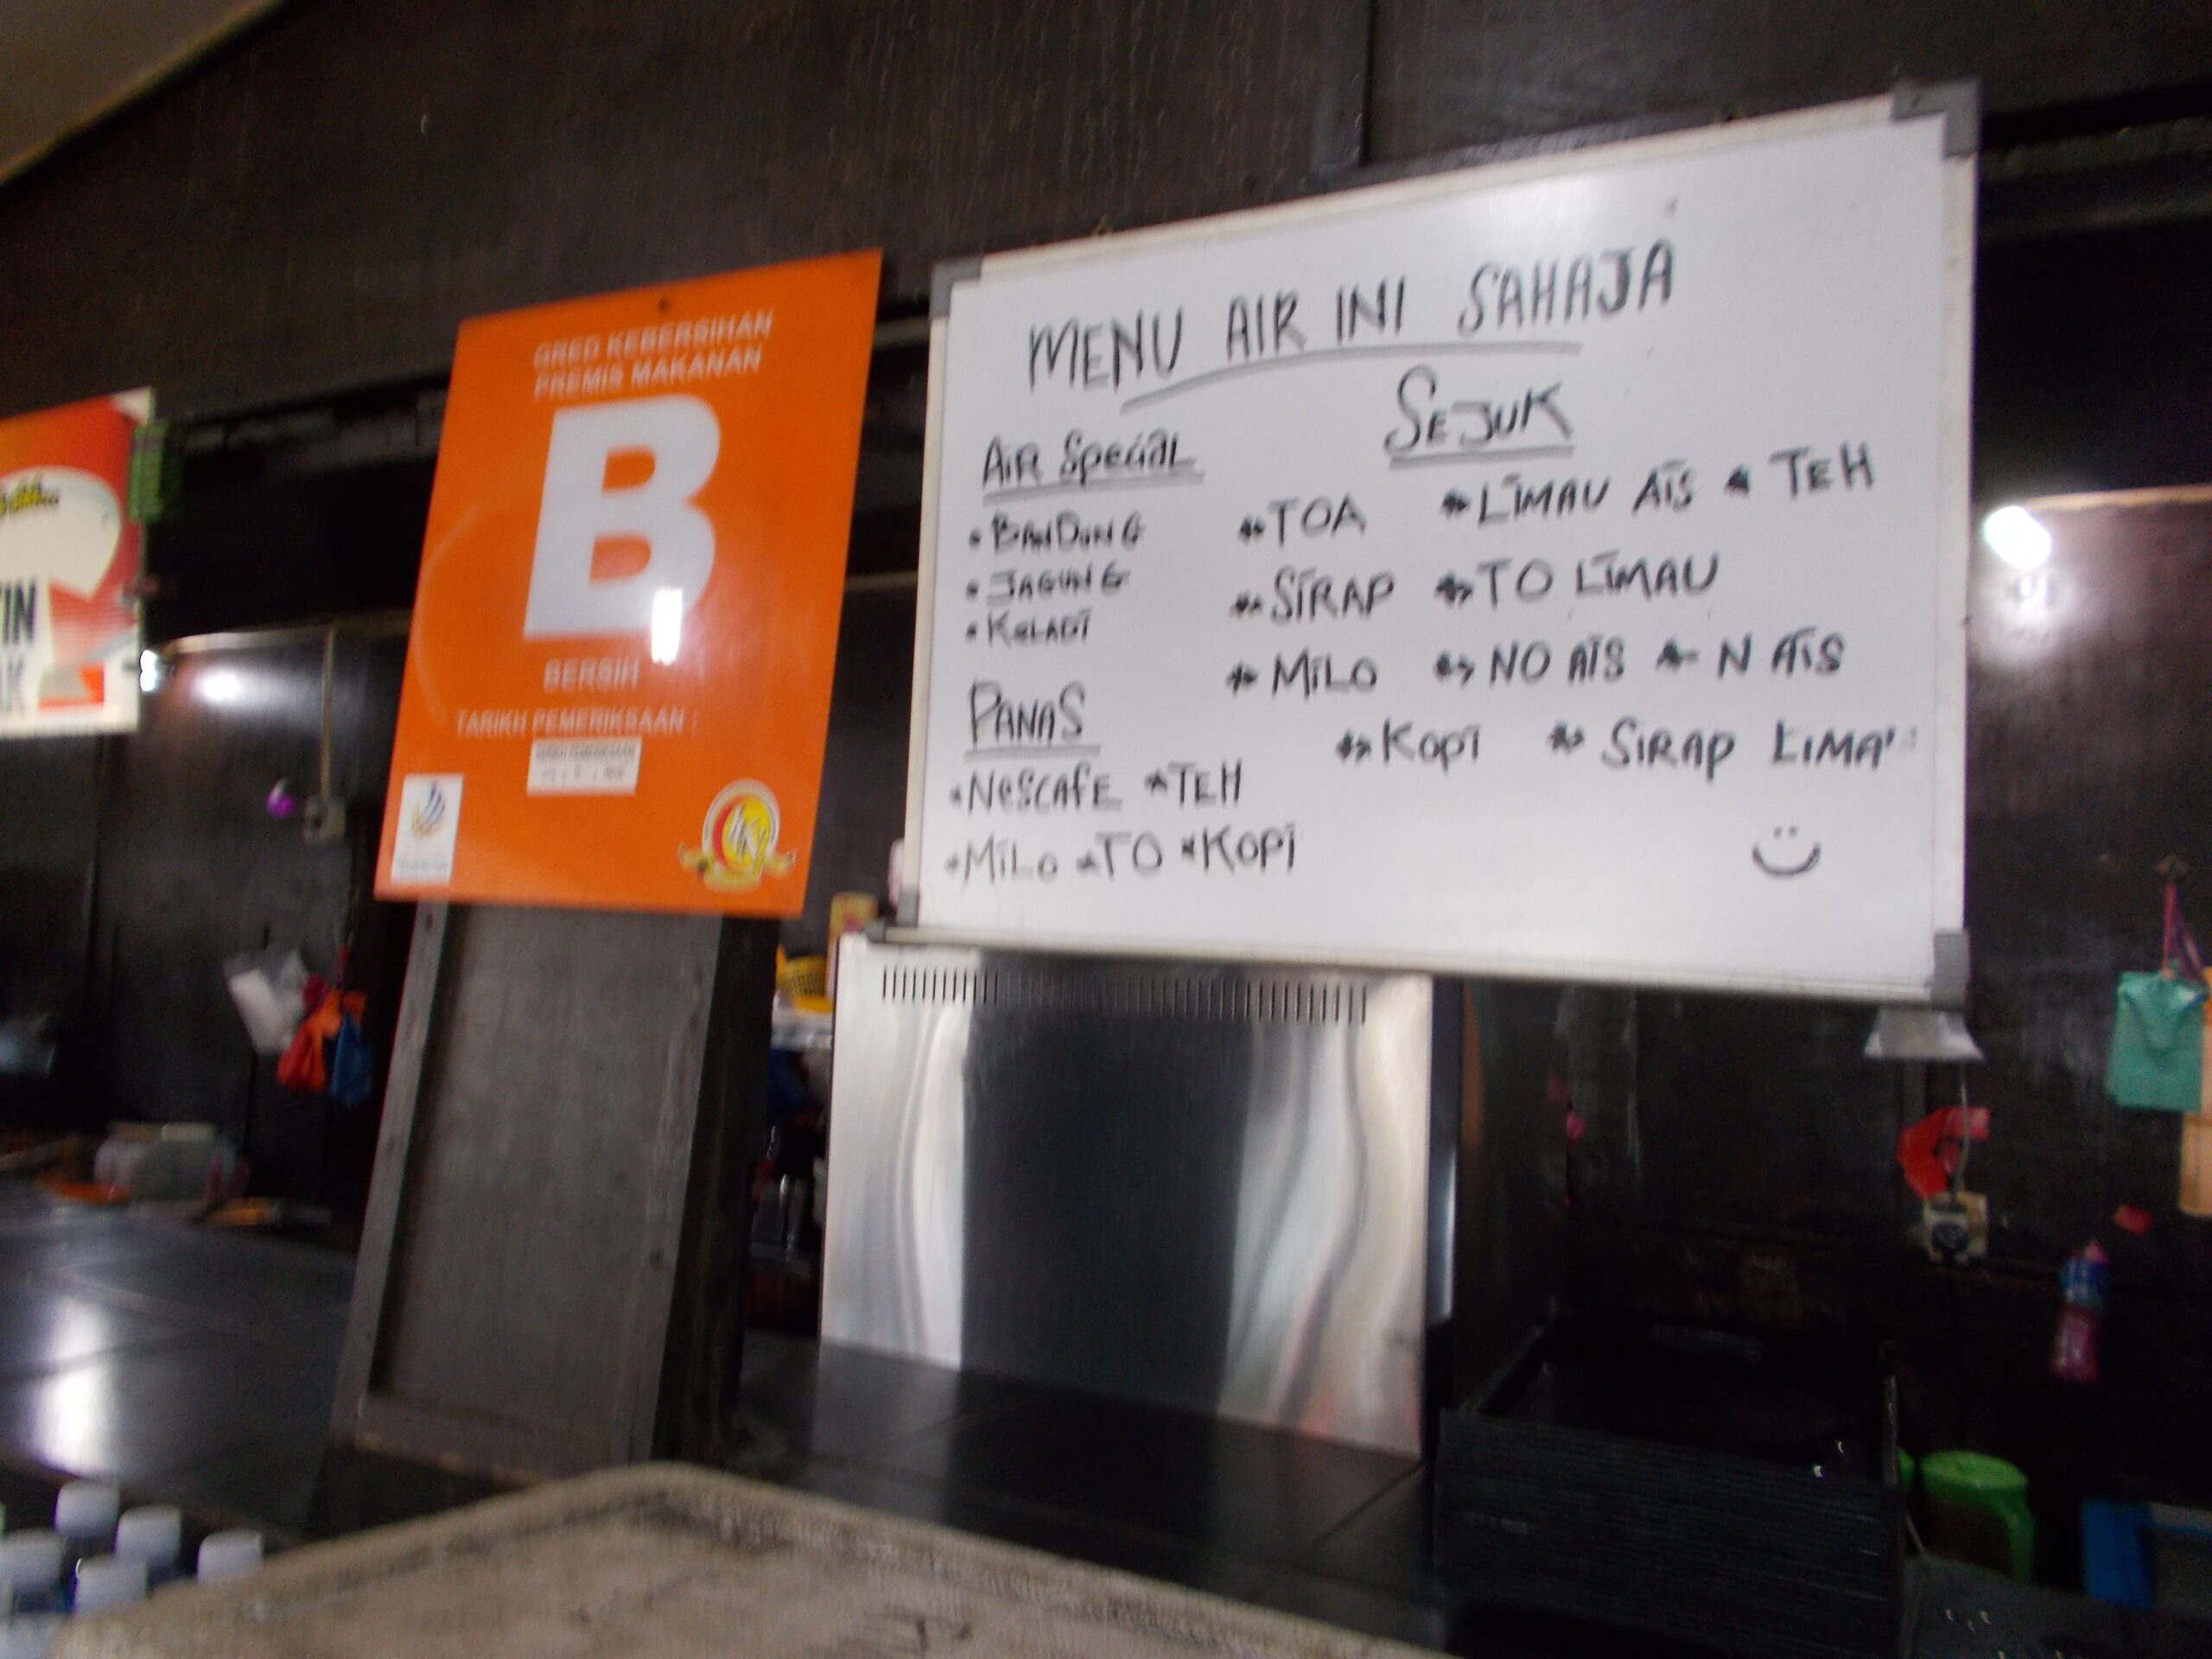 GRED KEBERSIHAN
PREMIS MAKANAN
B
BERSIH
TARIKH PEMERIKSAAN :
MENU AIR INI SAHAJA
AiR Special
• BANDUNG
• JAGUNG
• KELADI
PANAS
• NESCAFE * TEH
• MiLo * TO * KOPI
SEJUK
* TOA * LIMAU AIS * TEH
* SIRAP * TO LIMAU
* MiLO * NO AIS * N AIS
* KOPI * SIRAP LIMA
IN
AK